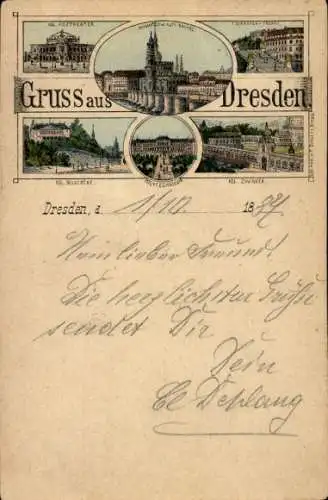 KGL. HOFTHEATER
Gruss aus Dresden
KGL. BELVEDERE
KGL. ZWINGER
Dresden, d. 1/10. 1889
Mein lieber Freund.
Die herzlichsten Grüße
sendet Dir
Dein